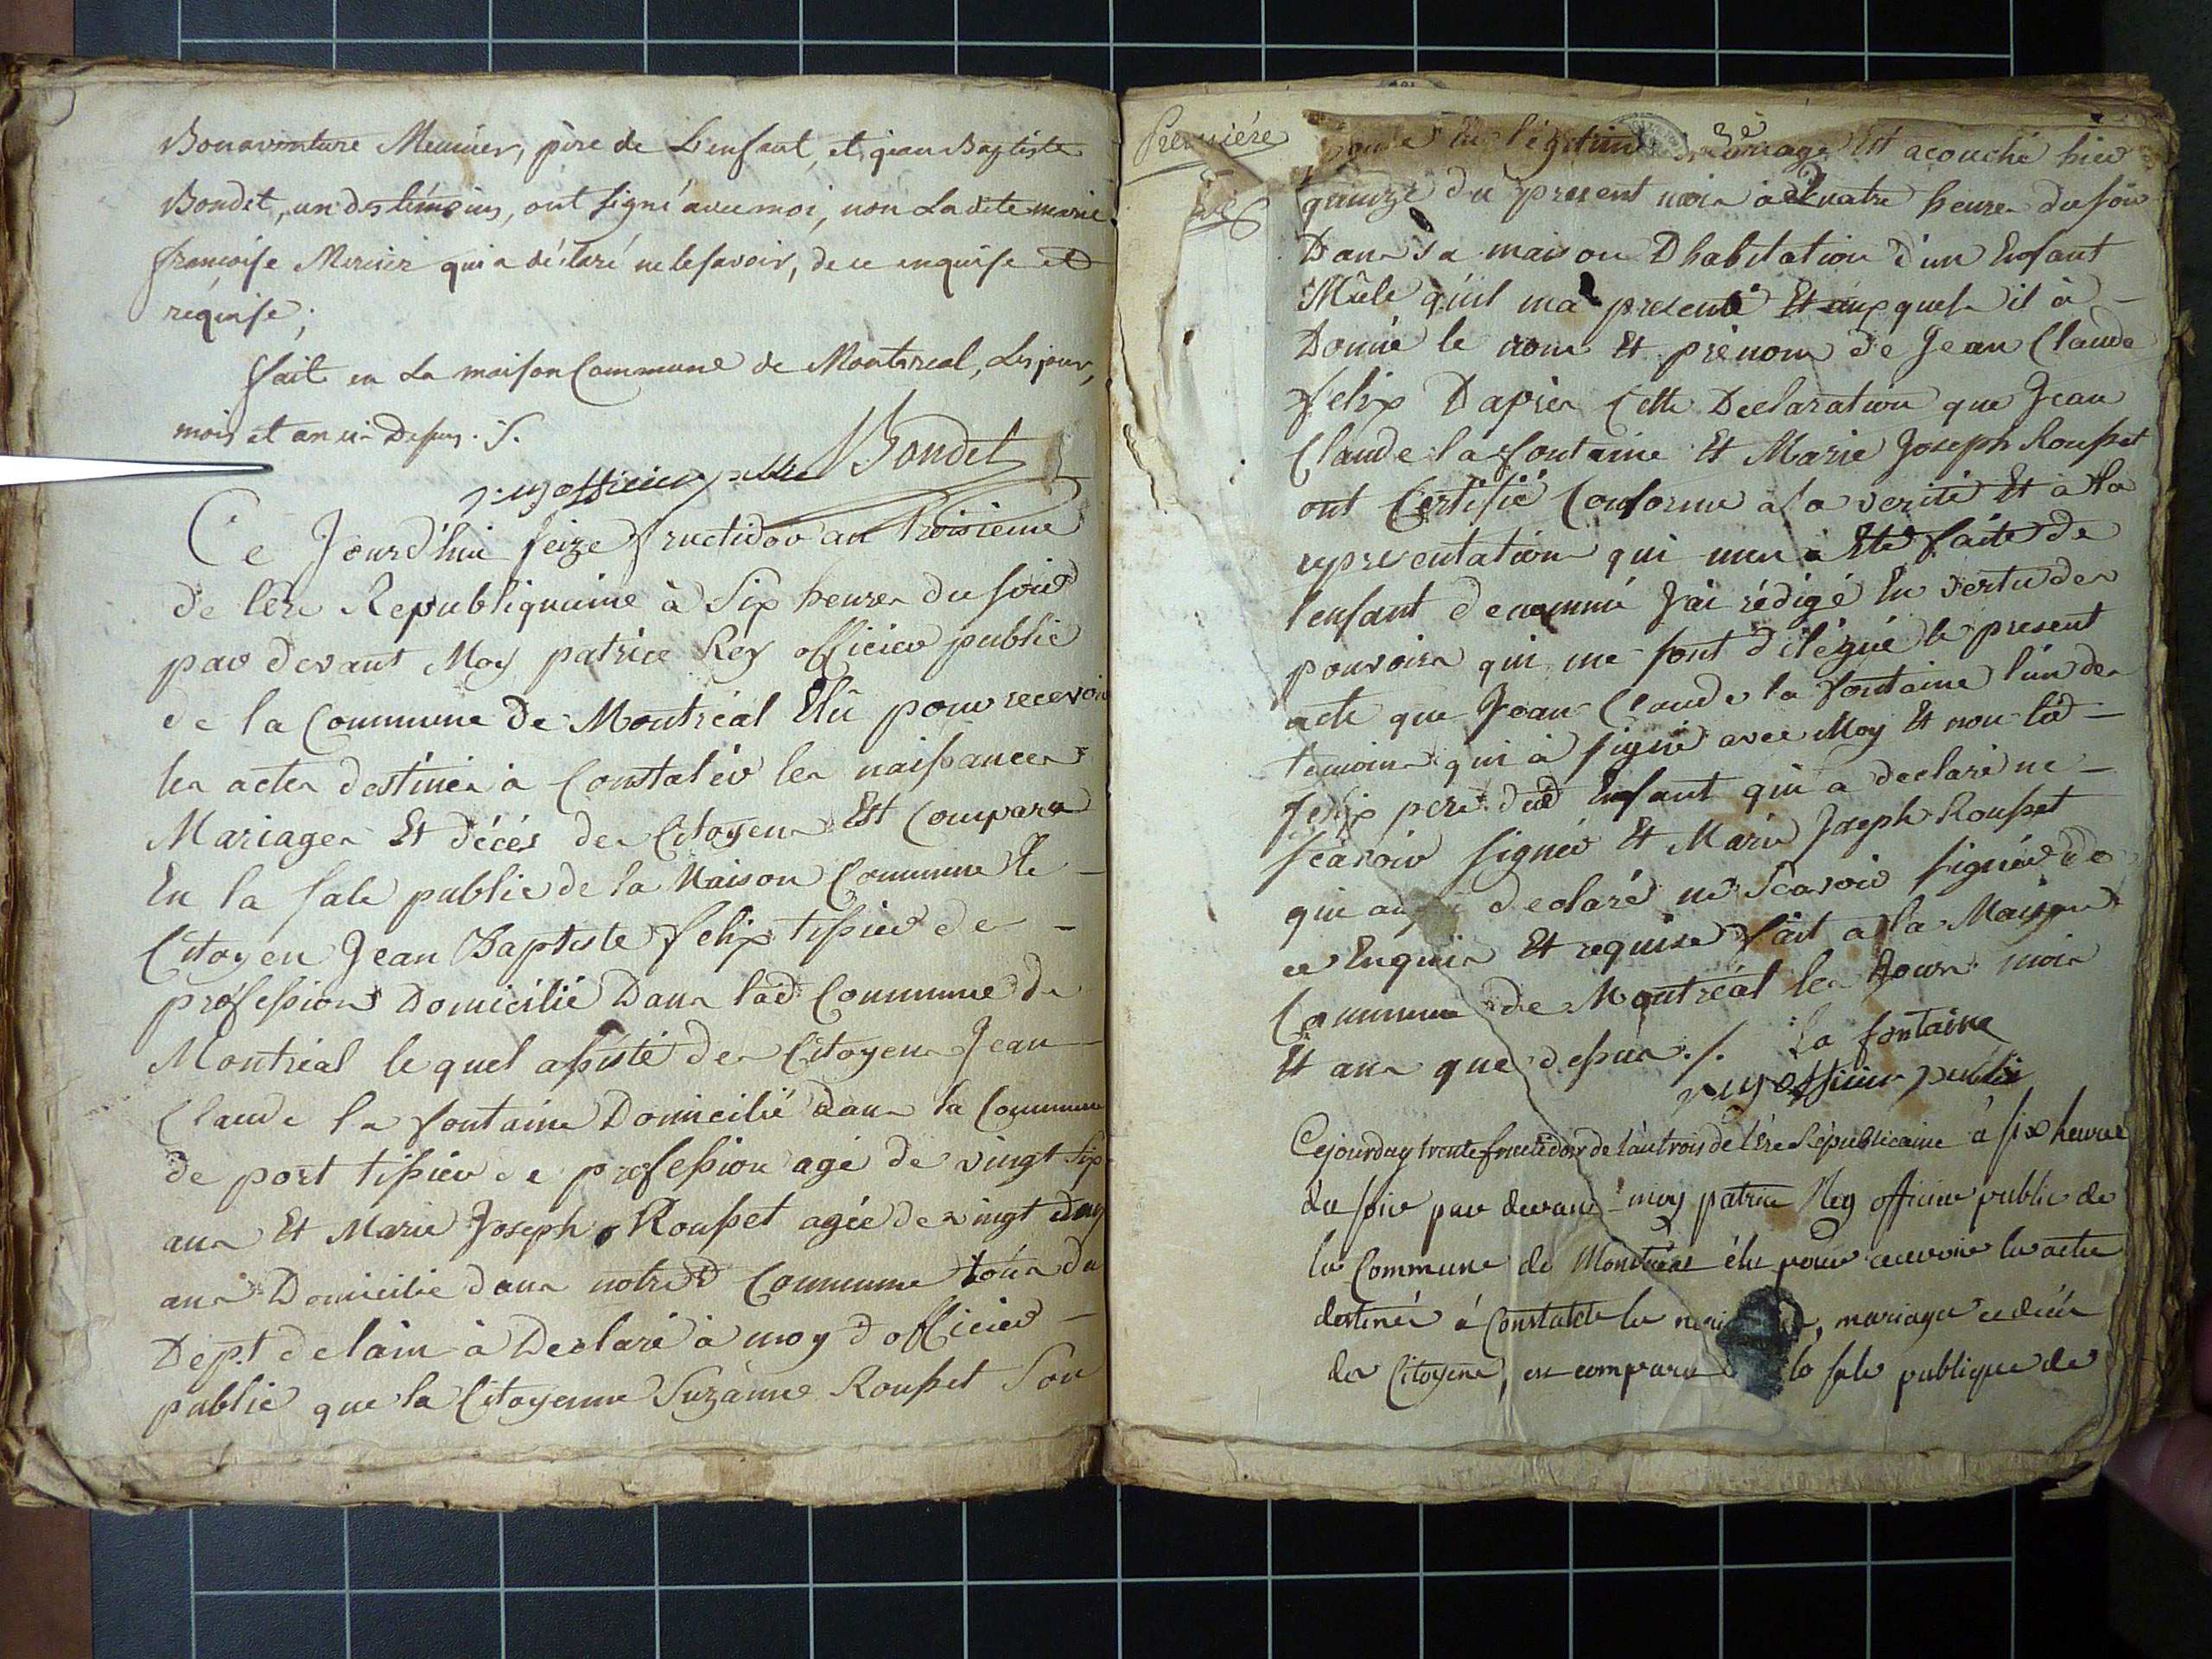 Bonaventure Meunier, père de L'enfant, et jean Baptiste
Bondet, un des témoins, ont signé avec moi, non La dite marie
françoise Mercier qui a déclaré ne le savoir, de ce enquise et
réquise;
fait en La maison Commune de Montreal, Les jour,
mois et an ci-Dessus ./.
Bondet
rey officier public
Ce Jourd'hui seize fructidor an troisieme
de lère Republiquaine à Six heures du soir
par devant Moy patrice Rey officier public
de la Commune de Montréal Elû pour recevoir
les actes destinés à Constatér les naissances
Mariages Et décés des Citoyens Est Comparu
En la sale public de la Maison Commune le
Citoyen Jean Baptiste felix tissier de
proféssions Domicilié Dans lad Commune de
Montréal le quel assisté des Citoyens Jean
Claude la fontaine Domicilié dans la Commune
de port tissier de profession agé de vingt Six
ans Et Marie Joseph Rousset agée de vingt
ans Domicilié dans notred Commune tous du
Dept de lain à Declaré à moy d officier
public que la Citoyenne Suzànne Rousset Son
Premiére
légitime mariage Est acouché hier
quinze du present mois à quatre heures du soir
Dans sa maison Dhabitation d'un Enfant
Mâle qu'il ma presenté Et aux quels il à
Donné le nom Et prénom de Jean Claude
felix Daprès Cette Declaration que Jean
Claude la fontaine Et Marie Joseph Rousset
ont Certifié Conforme a la verité Et à la
representation qui men a Eté faite de
lenfant denommé Jai rédigé En vertu des
pouvoirs qui me sont délégué le present
acte que Jean Claude la fontaine l'un des
temoins qui à signé avec Moy Et non led
felix pere dud Enfant qui a declaré ne
sçavoir signér Et Marie Joseph Rousset
qui aussi declaré ne Scavoir signér de
ce Enquis Et requise fait a la Maison
Commune de Montréal les Jours mois
Et ans que dessus ./. La fontaine
rey officier public
Cejourduy trente fructidor de l'an trois de l'ère Républicaine à six heures
du soir par devant moy patrice Rey officier public de
la Commune de Montréal élu pour recevoir les actes
destinés à Constater les mariages et décés
des Citoyens, est comparu la sale publique de